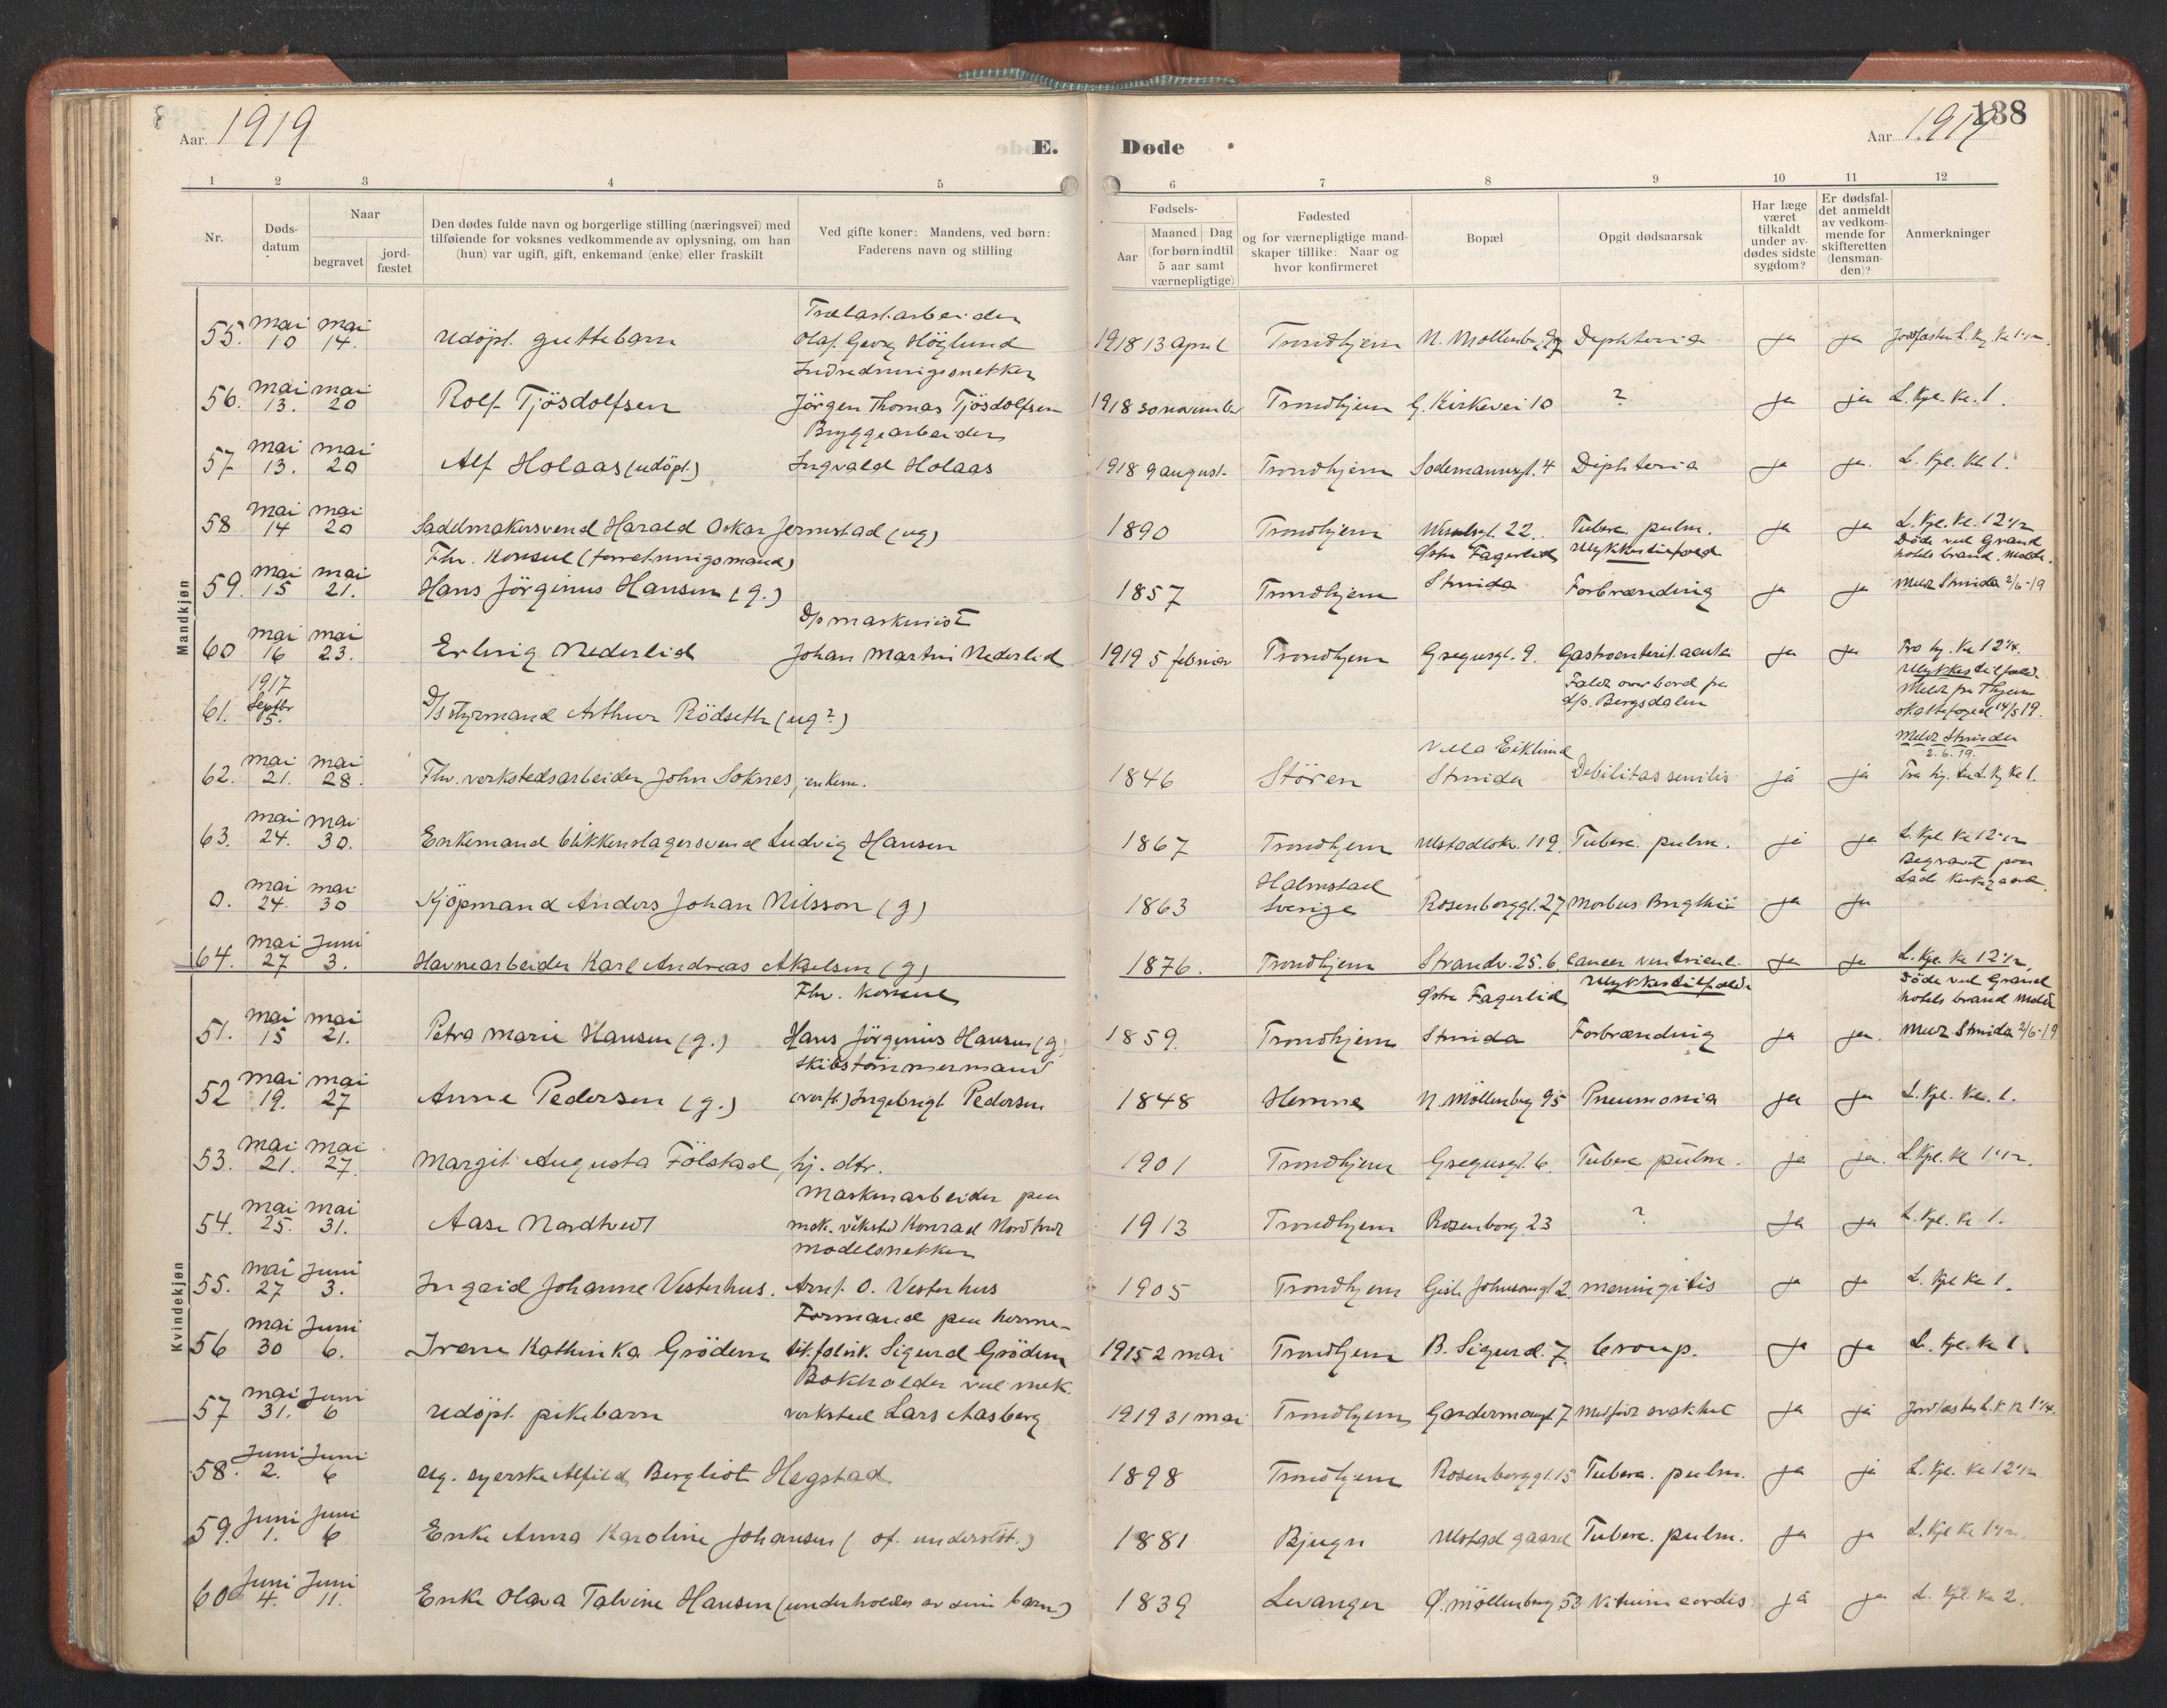 Aar. 1919
E. Døde
Aar 1919
138
1 2 3 4 5 6 7 8 9 10 11 12
Nr.
Døds-
datum
Naar
begravet
jord-
fæstet
Den dødes fulde navn og borgerlige stilling (næringsvei) med
tilføiende for voksnes vedkommende av oplysning, om han
(hun) var ugift, gift, enkemand (enke) eller fraskilt
Ved gifte koner: Mandens, ved børn:
Faderens navn og stilling
Fødsels-
Aar
Maaned Dag
(for børn indtil
5 aar samt
værnepligtige)
Fødested
og for værnepligtige mand-
skaper tillike: Naar og
hvor konfirmeret
Bopæl
Opgit dødsaarsak
Har læge
været
tilkaldt
under av-
dødes sidste
sygdom?
Er dødsfal-
det anmeldt
av vedkom-
mende for
skifteretten
(lensman-
den)?
Anmerkninger
Mandkjøn
Trælastarbeider
55. mai 10 mai 14. Udöpt guttebarn Olaf Georg Höglund 1918 13 april Trondhjem N. Mollenbg. Diphteria ja ja
Indredningssnekker
56. mai 13. mai 20 Rolf Tjösdolfsen Jörgen Thomas Tjösdolfsen 1918 30 november Trondhjem G. Kirkevei 10 ? ja ja L. Kpl. Kl. 1.
Bryggearbeider
57 mai 13. mai 20 Alf Holaas (udöpt) Ingvald Holaas 1918 9 august Trondhjem Sodemannsgt. 4 Diphteria ja ja. L. Kpl. Kl. 1.
58 mai 14 mai 20 Sadelmakersvend Harald Oskar Jermstad (ug) 1890 Trondhjem 22. Tuberc. pulm. ja ja L. Kpl. Kl. 12 1/2
Fhv. Konsul (forretningsmand) Østre Fagerlid Ulykkestilfæld Døde ved Grand
hotels brand. Molde.
59. mai 15 mai 21. Hans Jörginus Hansen (g.) 1857 Trondhjem Strinda Forbrænding ja ja Meldt Strinda 2/6-19
D/s maskinist
60 mai 16 mai 23. Erling Nederlid Johan Martin Nederlid 1919 5 februar Trondhjem Gregusgt. 9. Gastroenterit. acuta ja ja Fra hj. Kl 12 1/4.
1917 Falt overbord fra Ulykkestilfæld.
61. Septbr 5. D/s styrmand Arthur Rödseth (ug?) D/s. Bergsdalen Meldt fra Thjem
skattefoged 14/5 19.
Villa Eiklund Meldt Strinda
2.6.19
62. mai 21. mai 28. Fhv. verkstedsarbeider John Soknes, enkem. 1846 Stören Strinda Debilitas senilis ja ja Fra hj. L. Kpl. Kl 1.
63. mai 24. mai 30. Enkemand blikkenslagersvend Ludvig Hansen 1867 Trondhjem Ulstadløk. 119. Tuberc. pulm. ja ja L. Kpl. Kl 12 1/2
Halmstad Begravet paa
Lade Kirkegaard.
0. mai 24. mai 30 Kjöpmand Anders Johan Nilsson (g) 1863 Sverige Rosenborggt. 27 Morbus Brightii ja ja
64. mai 27 Juni 3. Havnearbeider Karl Andreas Akselsen (g) 1876. Trondhjem Strandv. 25.b Cancer ventricul. ja ja L. Kpl. Kl 12 1/2
Kvindekjøn
Fhv. Konsul Østre Fagerlid Ulykkestilfælde Døde ved Grand
hotels brand Molde
51. mai 15 mai 21. Petra Marie Hansen (g.) Hans Jörginus Hansen (g) 1859. Trondhjem Strinda Forbrænding ja ja. Meldt Strinda 2/6-19
Skibstömmermand
52 mai 19. mai 27 Anne Pedersen (g.) Ingebrigt Pedersen 1848 Hemne N. Möllenbg 95 Pneumonia ja ja L. Kpl. Kl. 1.
53. mai 21. mai 27. Margit Augusta Fölstad, hj. dtr. 1901 Trondhjem Gregusgt. 6. Tuberc. pulm. ja ja. L. Kpl. Kl 1 1/2.
Maskinarbeider paa
54. mai 25. mai 31. Aase Nordtvedt mek. verksted Konrad Nordtvedt 1913 Trondhjem Rosenborg 23 ? ja ja L. Kpl. Kl 1.
Modelsnekker
55. mai 27 Juni 3. Ingrid Johanne Vesterhus. Arnt O. Vesterhus 1905 Trondhjem Gisle Johnsonsgt 2. meningitis ja ja L. Kpl Kl 1.
Formand paa herme-
56 mai 30 Juni 6. Irene Kathinka Grödem tik.fabrik. Sigurd Grödem 1915 2 mai Trondhjem B. Sigurd. 7. Croup. ja ja L. Kpl. Kl 1.
Bokholder ved mek.
57 mai 31. Juni 6 Udöpt pikebarn verksted Lars Aasberg 1919 31 mai Trondhjem Gardermogt. 7 Medfödt svakhet ja ja
58. Juni 2. Juni 6 ug. syerske Alfild Bergliot Hegstad 1898 Trondhjem Rosenborggt. 15 Tuberc. pulm. ja ja L. Kpl. Kl 12 1/2
59. Juni 1. Juni 6 Enke Anna Karoline Johansen (of. understöt.) 1881 Bjugn Ulstad gaard Tuberc. pulm. ja ja L. Kpl Kl 1 1/2
60 Juni 4. Juni 11. Enke Olava Talvine Hansen (underholdes av sine barn) 1839 Levanger Ø. Möllenbg 53 Vitium cordis ja ja L. Kpl. Kl 2.